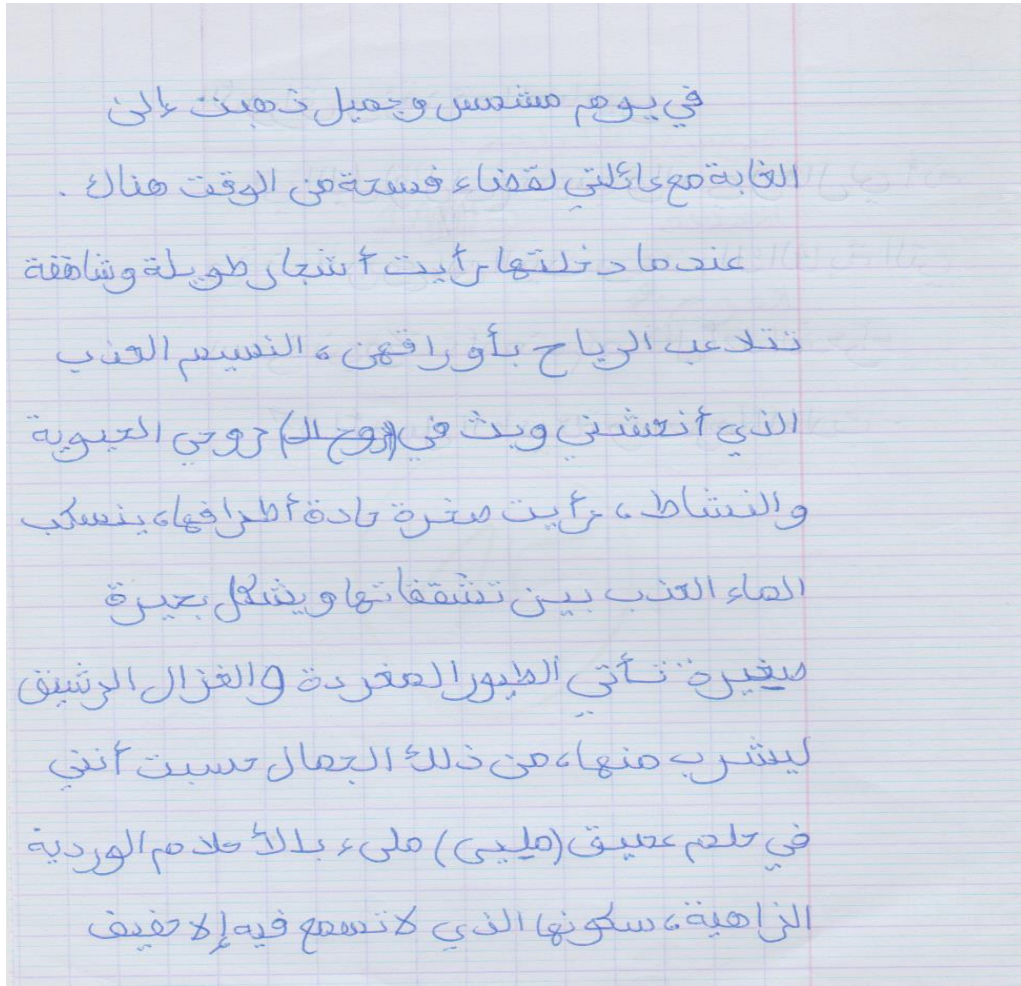 في يوم مشمس وجميل ذهبت إلى
الغابة مع عائلتي لقضاء فسحة من الوقت هناك .
عندما دخلتها رأيت أشجار طويلة وشاهقة
تتلاعب الرياح بأوراقهن ، النسيم العذب
الذي أنعشني وبث في (روح ال) روحي الحيوية
والنشاط ، رأيت صخرة حادة أطرافها، ينسكب
الماء العذب بين تشققاتها ويشكل بحيرة
صغيرة تأتي الطيور المغردة والغزال الرشيق
ليشرب منها، من ذلك الجمال حسبت أنني
في حلم عميق (مليى) مليء بالأحلام الوردية
الزاهية، سكونها الذي لا تسمع فيه إلا حفيف